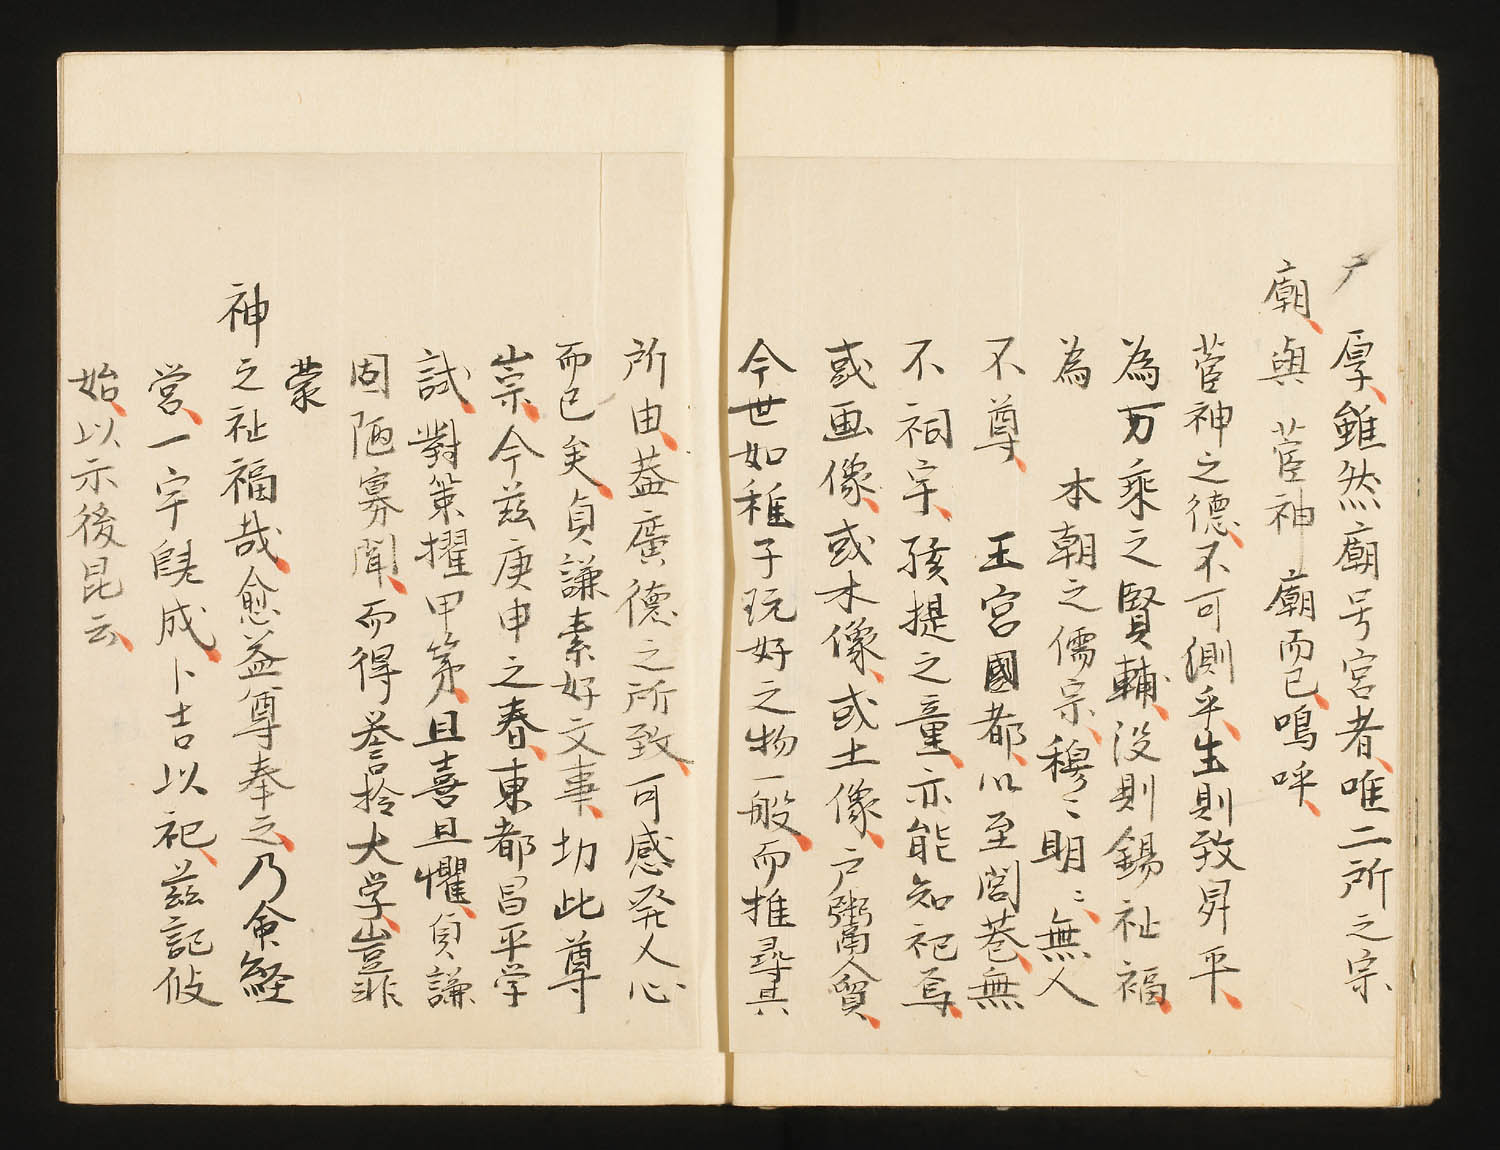 厚雖然廟号宮者唯二所之宗
廟與 菅神廟而已嗚呼
菅神之德不可測乎生則致昇平
為万乘之賢輔没則錫祉福
為 本朝之儒宗穆〻明〻無人
不尊 王宮國都以至閭巷無
不祠宇孩提之童亦能知祀焉
或画像或木像或土像戸鬻人貿
今世如稚子玩好之物一般而推尋其
所由葢廣德之所致可感発人心
而已矣貞謙素好文事切此尊
崇今茲庚申之春東都昌平学
試對策擢甲第且喜且懼貞謙
固陋寡聞而得誉於大学豈非
蒙
神之祉福哉愈益尊奉之乃命経
営一宇既成卜吉以祀茲記攸
始以示後昆云